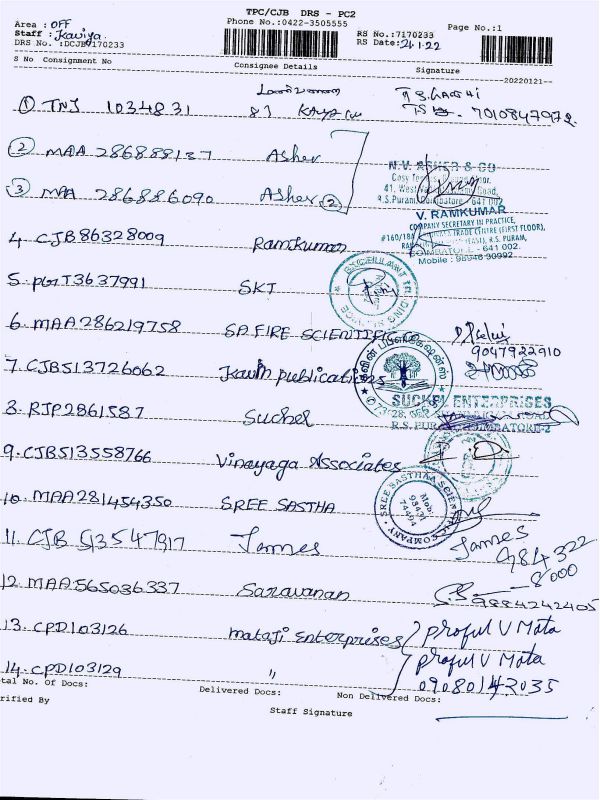 TPC/CJB DRS - PC2
Area : OFF
Phone No.:0422-3505555
Page No.:1
Staff : Kaviya
RS No.:7170233
DRS No. :DCJB7170233
RS Date:21.1.22
S No Consignment No Consignee Details Signature
20220121
① TNJ 1034831
7010847972
② MAA 286888137 Asher
③ MAA 286886090 Asher ②
N.V. ASHER & CO
R.S.Puram, Coimbatore - 641 002
V. RAMKUMAR
COMPANY SECRETARY IN PRACTICE,
TRADE CENTRE (FIRST FLOOR),
R.S. PURAM,
COIMBATORE - 641 002.
4. CJB86328009 Ramkumar
5. PBT3637991 SKT
6. MAA286219758 SP FIRE SCIENTIFIC CO
9047922910
7. CJB513726062 Kavin publications
SUCHEL ENTERPRISES
8. RJP2861587 Suchel
R.S. PURAM, COIMBATORE-2
9. CJB513558766 Vinayaga Associates
10. MAA281454350 SREE SASTHA
SREE SASTHAA SCIENTIFIC COMPANY
Mob: 98431 74494
11. CJB 513547917 James James
984322
8000
12. MAA565036337 Saravanan
9884242405
13. CPD103126 mataji Enterprises Praful V Mota
14. CPD103129 " Praful V Mota
09080142035
tal No. Of Docs: Delivered Docs: Non Delivered Docs:
rified By
Staff Signature